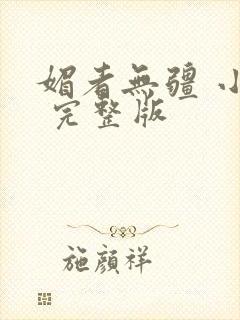 媚者無疆 小
完整版
施顏祥